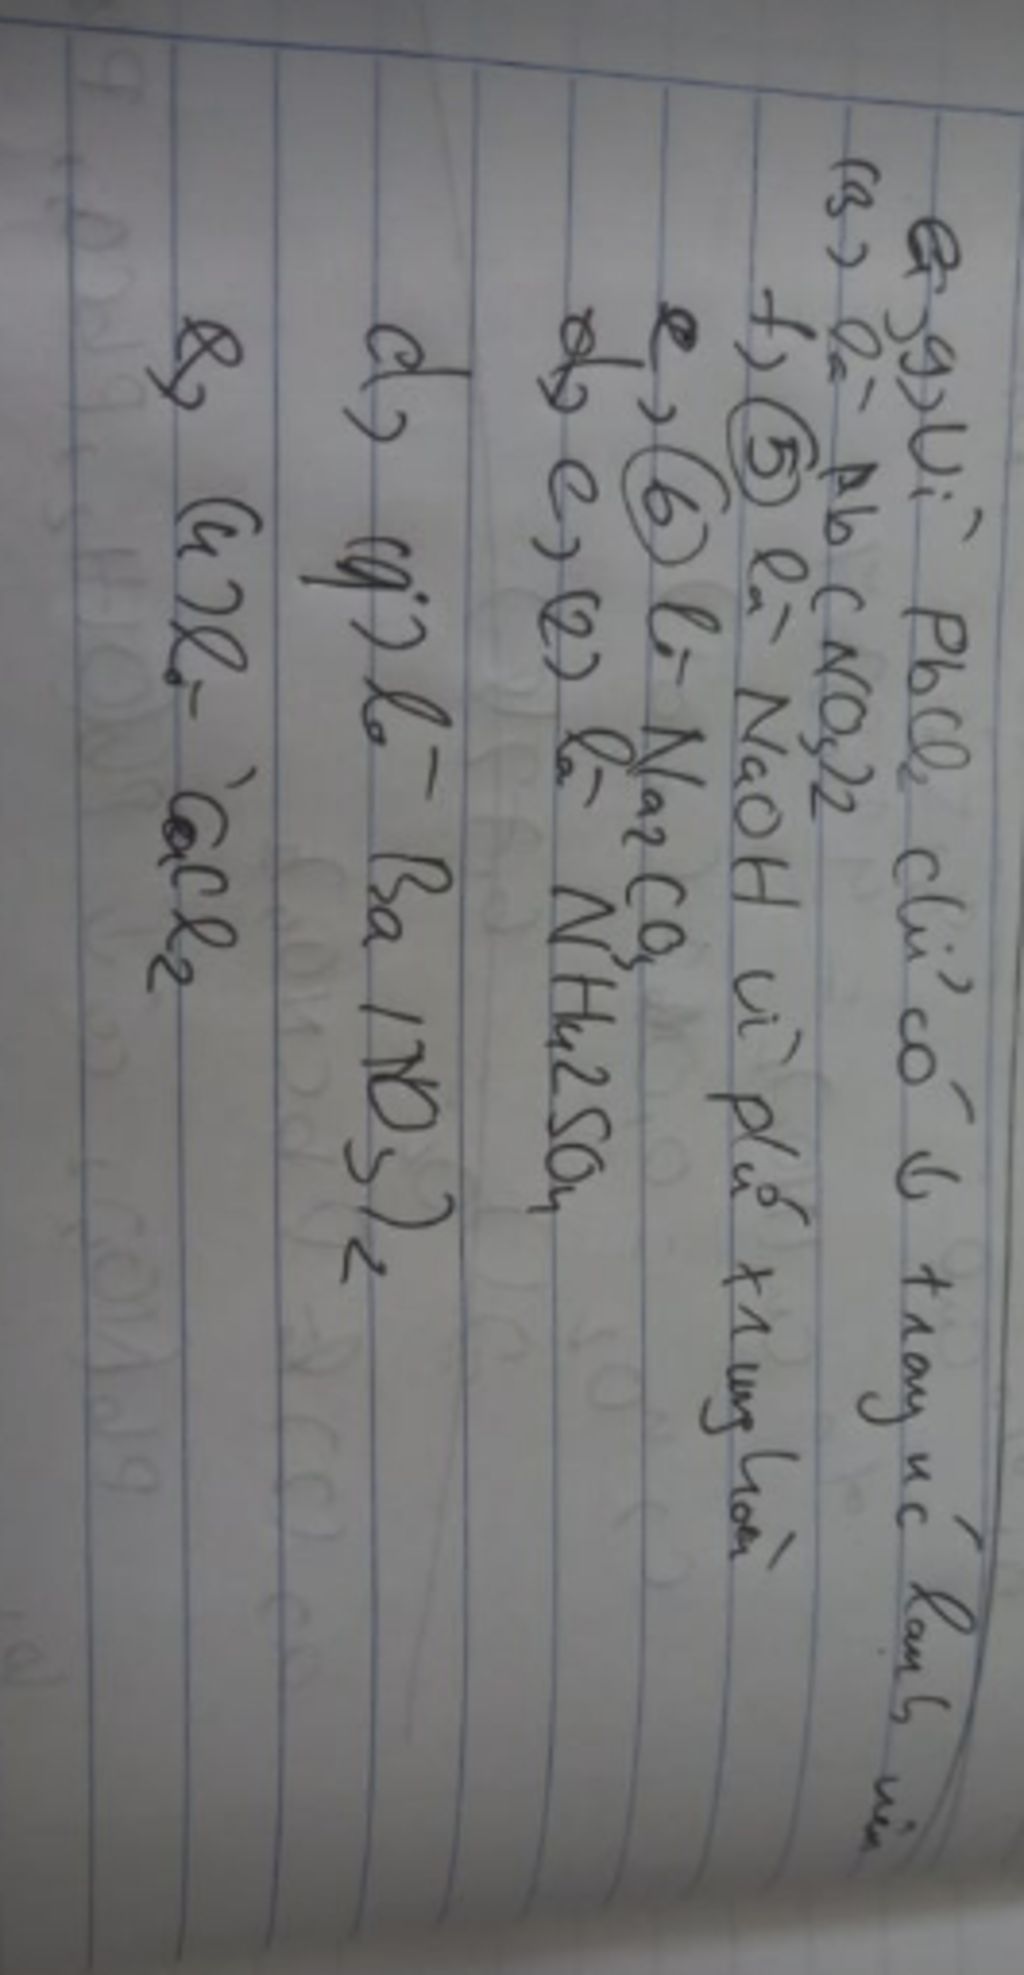 g, Vì PbCl2 chỉ có ↓ trong nước lạnh nên
(3) là Pb(NO3)2
f, (5) là NaOH vì pứ trung hoà
e, (6) là Na2CO3
e, (2) là NH42SO4
d, (1) là Ba(NO3)2
(4) là CaCl2